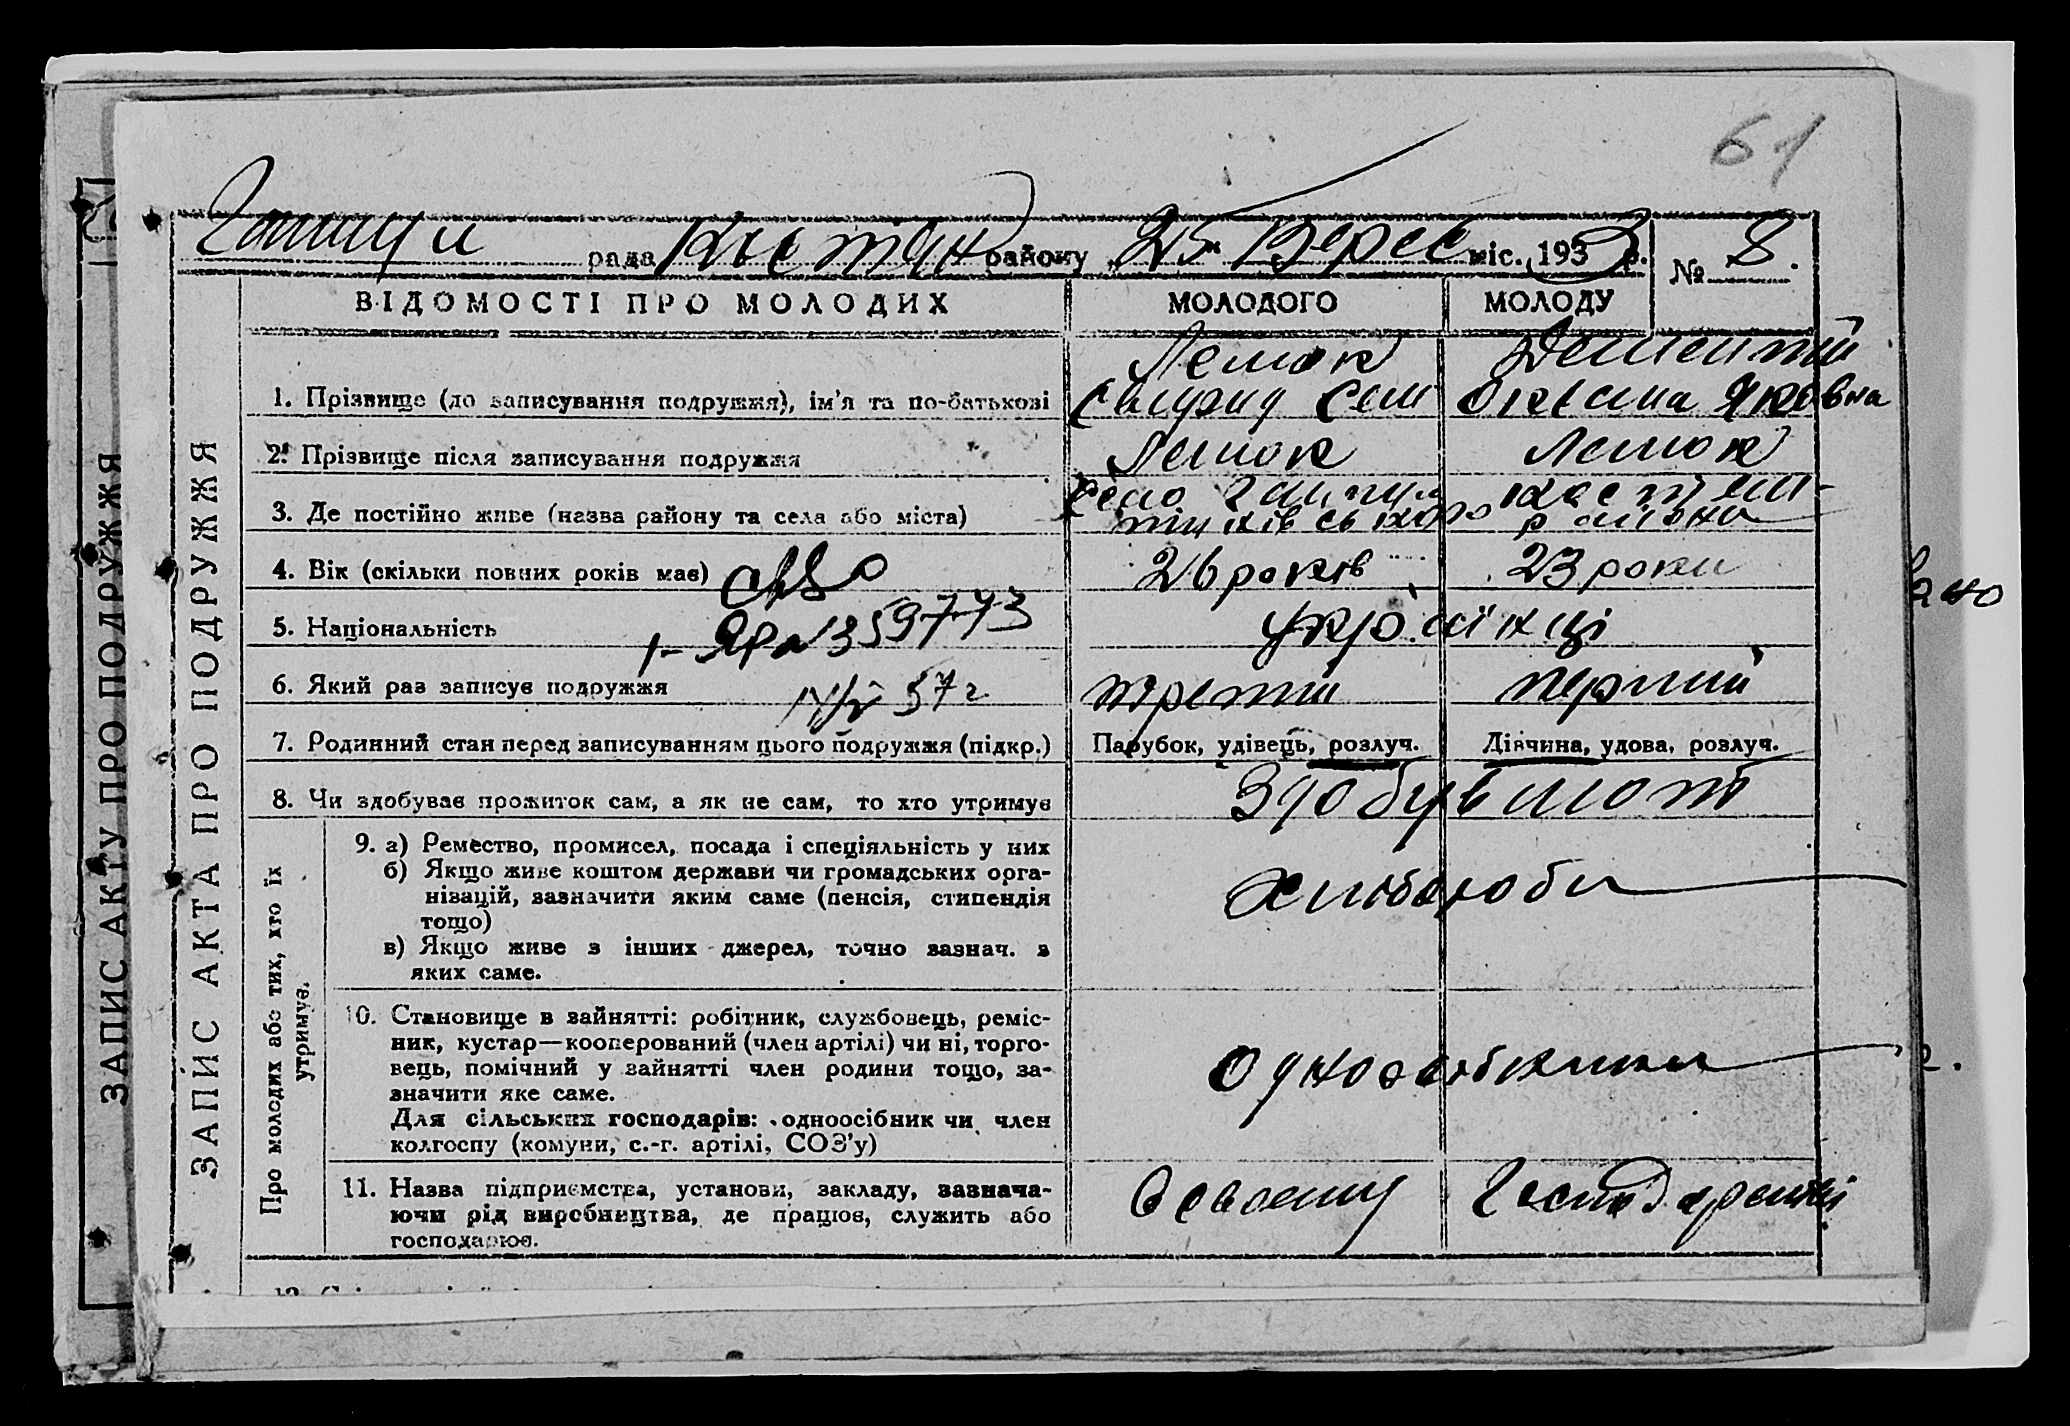 61
рада району 25 Верес міс. 193 р. № 8.
ЗАПИС АКТУ ПРО ПОДРУЖЖЯ
ЗАПИС АКТА ПРО ПОДРУЖЖЯ
ВІДОМОСТІ ПРО МОЛОДИХ МОЛОДОГО МОЛОДУ
Лемок
1. Прізвище (до записування подружжя), ім'я та по-батькові Свирид Сем Оксана Яковна
2. Прізвище після записування подружжя Лемок Лемок
3. Де постійно живе (назва району та села або міста) Село
району
4. Вік (скільки повних років має) 26 років 23 роки
5. Національність українці
1- № 359773
6. Який раз записує подружжя третій перший
57 г
7. Родинний стан перед записуванням цього подружжя (підкр.) Парубок, удівець, розлуч. Дівчина, удова, розлуч.
8. Чи здобуває прожиток сам, а як не сам, то хто утримує Здобувают
Про молодих або тих, хто їх
утримує.
9. а) Ремество, промисел, посада і спеціяльність у них
б) Якщо живе коштом держави чи громадських орга-
нізацій, зазначити яким саме (пенсія, стипендія
тощо)
в) Якщо живе з інших джерел, точно зазнач. з
яких саме.
хлібороби
10. Становище в зайнятті: робітник, службовець, реміс-
ник, кустар—кооперований (член артілі) чи ні, торго-
вець, помічний у зайнятті член родини тощо, за-
значити яке саме.
Для сільських господарів: одноосібник чи член
колгоспу (комуни, с.-г. артілі, СОЗ'у)
одноосібники
11. Назва підприємства, установи, закладу, зазнача-
ючи рід виробництва, де працює, служить або
господарює.
В своему Господарстві